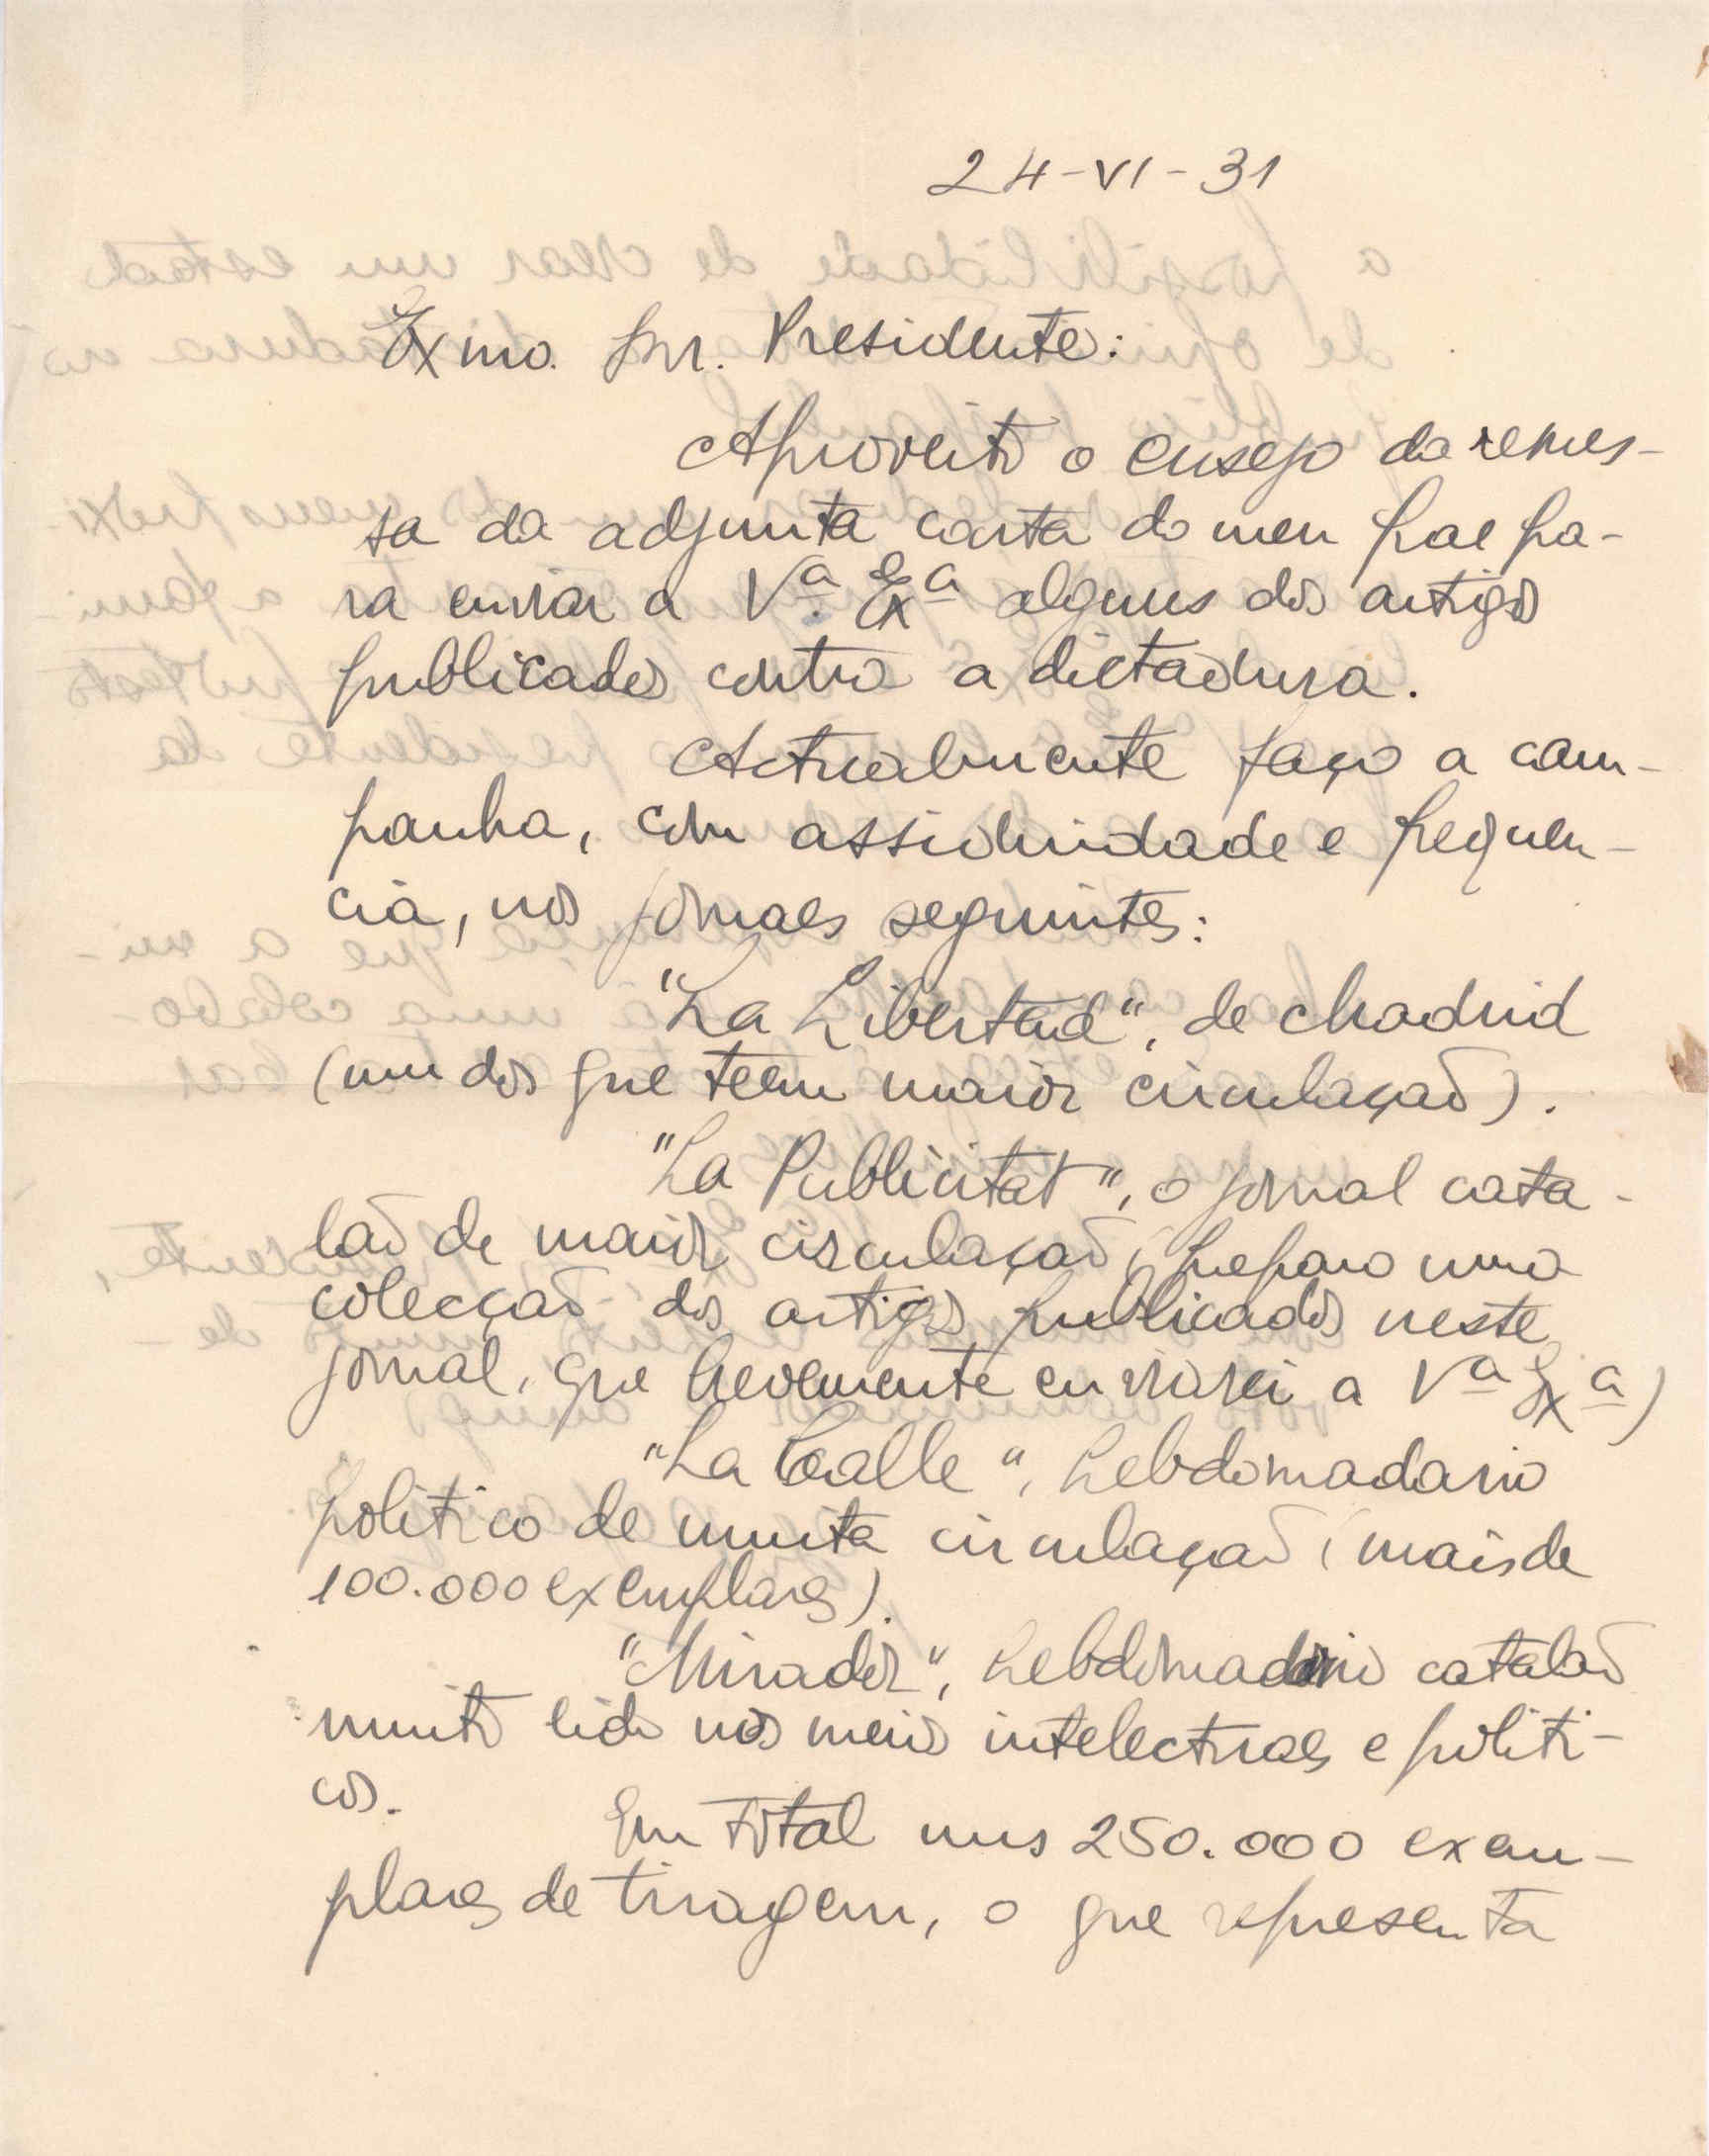 24-VI-31
Exmo. Snr. Presidente:
Aproveito o ensejo da remes-
sa da adjunta carta do meu pae pa-
ra enviar a Vª. Exª alguns dos artigos
publicados contra a dictadura.
Actualmente faço a cam-
panha, com assiduidade e frequen-
cia, nos jornaes seguintes:
"La Libertad", de Madrid
(um dos que teem maior circulação).
"La Publicitat", o jornal cata-
lão de maior circulação (preparo uma
colecção dos artigos publicados neste
jornal, que brevemente enviarei a Vª Exª)
"La Calle", hebdomadario
politico de muita circulação (mais de
100.000 exemplares).
"Mirador", hebdomadario catalão
muito lido nos meios intelectuaes e politi-
cos.
Em total uns 250.000 exem-
plares de tiragem, o que representa